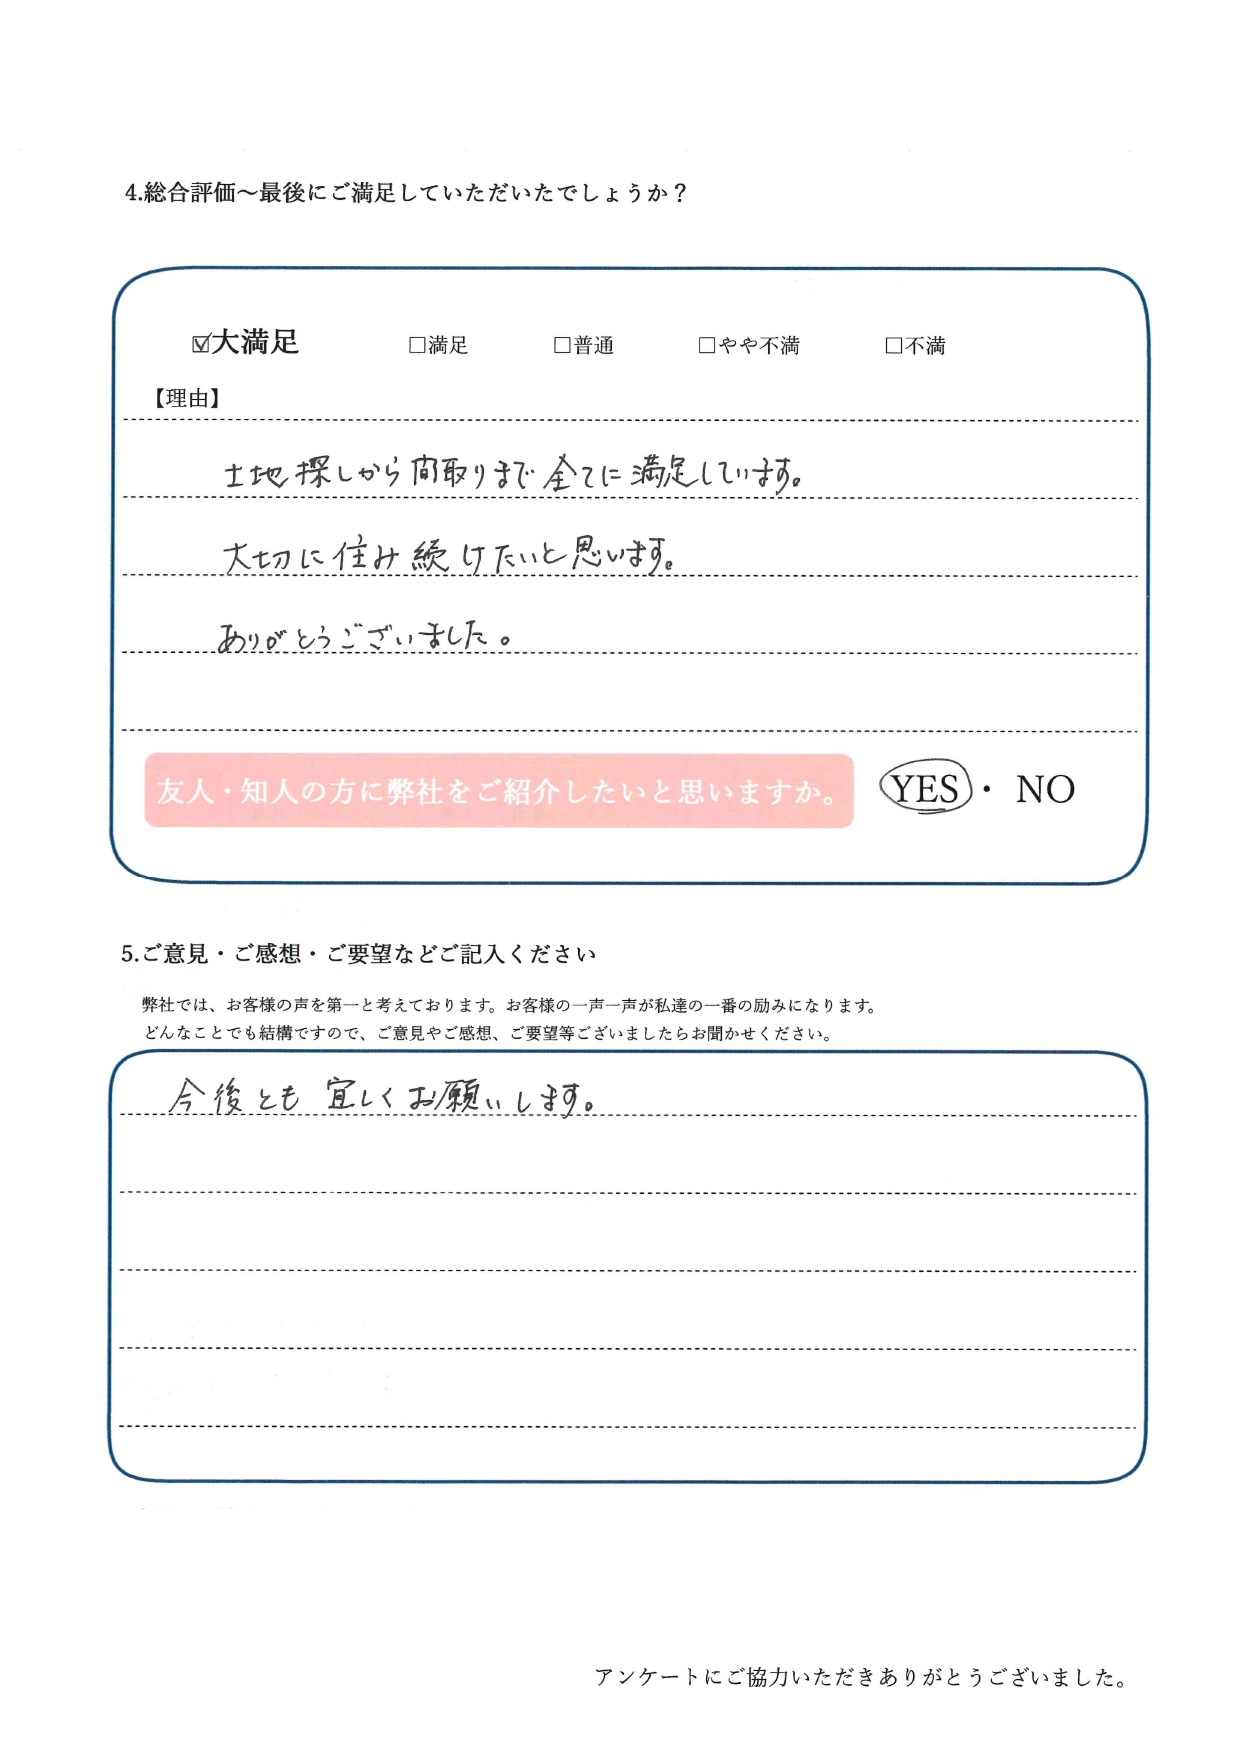 4.総合評価～最後にご満足していただいたでしょうか？
☑大満足 □満足 □普通 □やや不満 □不満
【理由】
土地探しから間取りまで全てに満足しています。
大切に住み続けたいと思います。
ありがとうございました。
友人・知人の方に弊社をご紹介したいと思いますか。 YES・NO
5.ご意見・ご感想・ご要望などご記入ください
弊社では、お客様の声を第一と考えております。お客様の一声一声が私達の一番の励みになります。
どんなことでも結構ですので、ご意見やご感想、ご要望等ございましたらお聞かせください。
今後とも宜しくお願いします。
アンケートにご協力いただきありがとうございました。